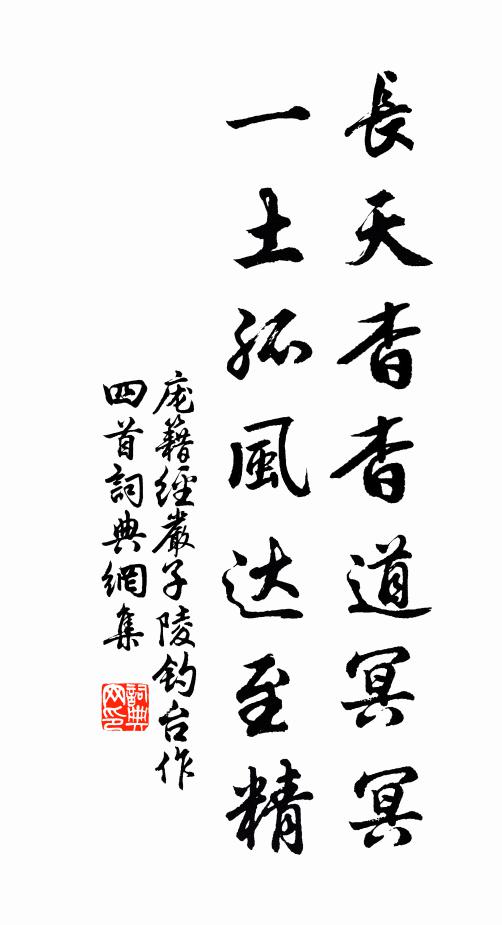 長天杳杳道冥冥
一土孤風达至精
庞籍經嚴子陵钓台作
四首詞典網集
詞典网印